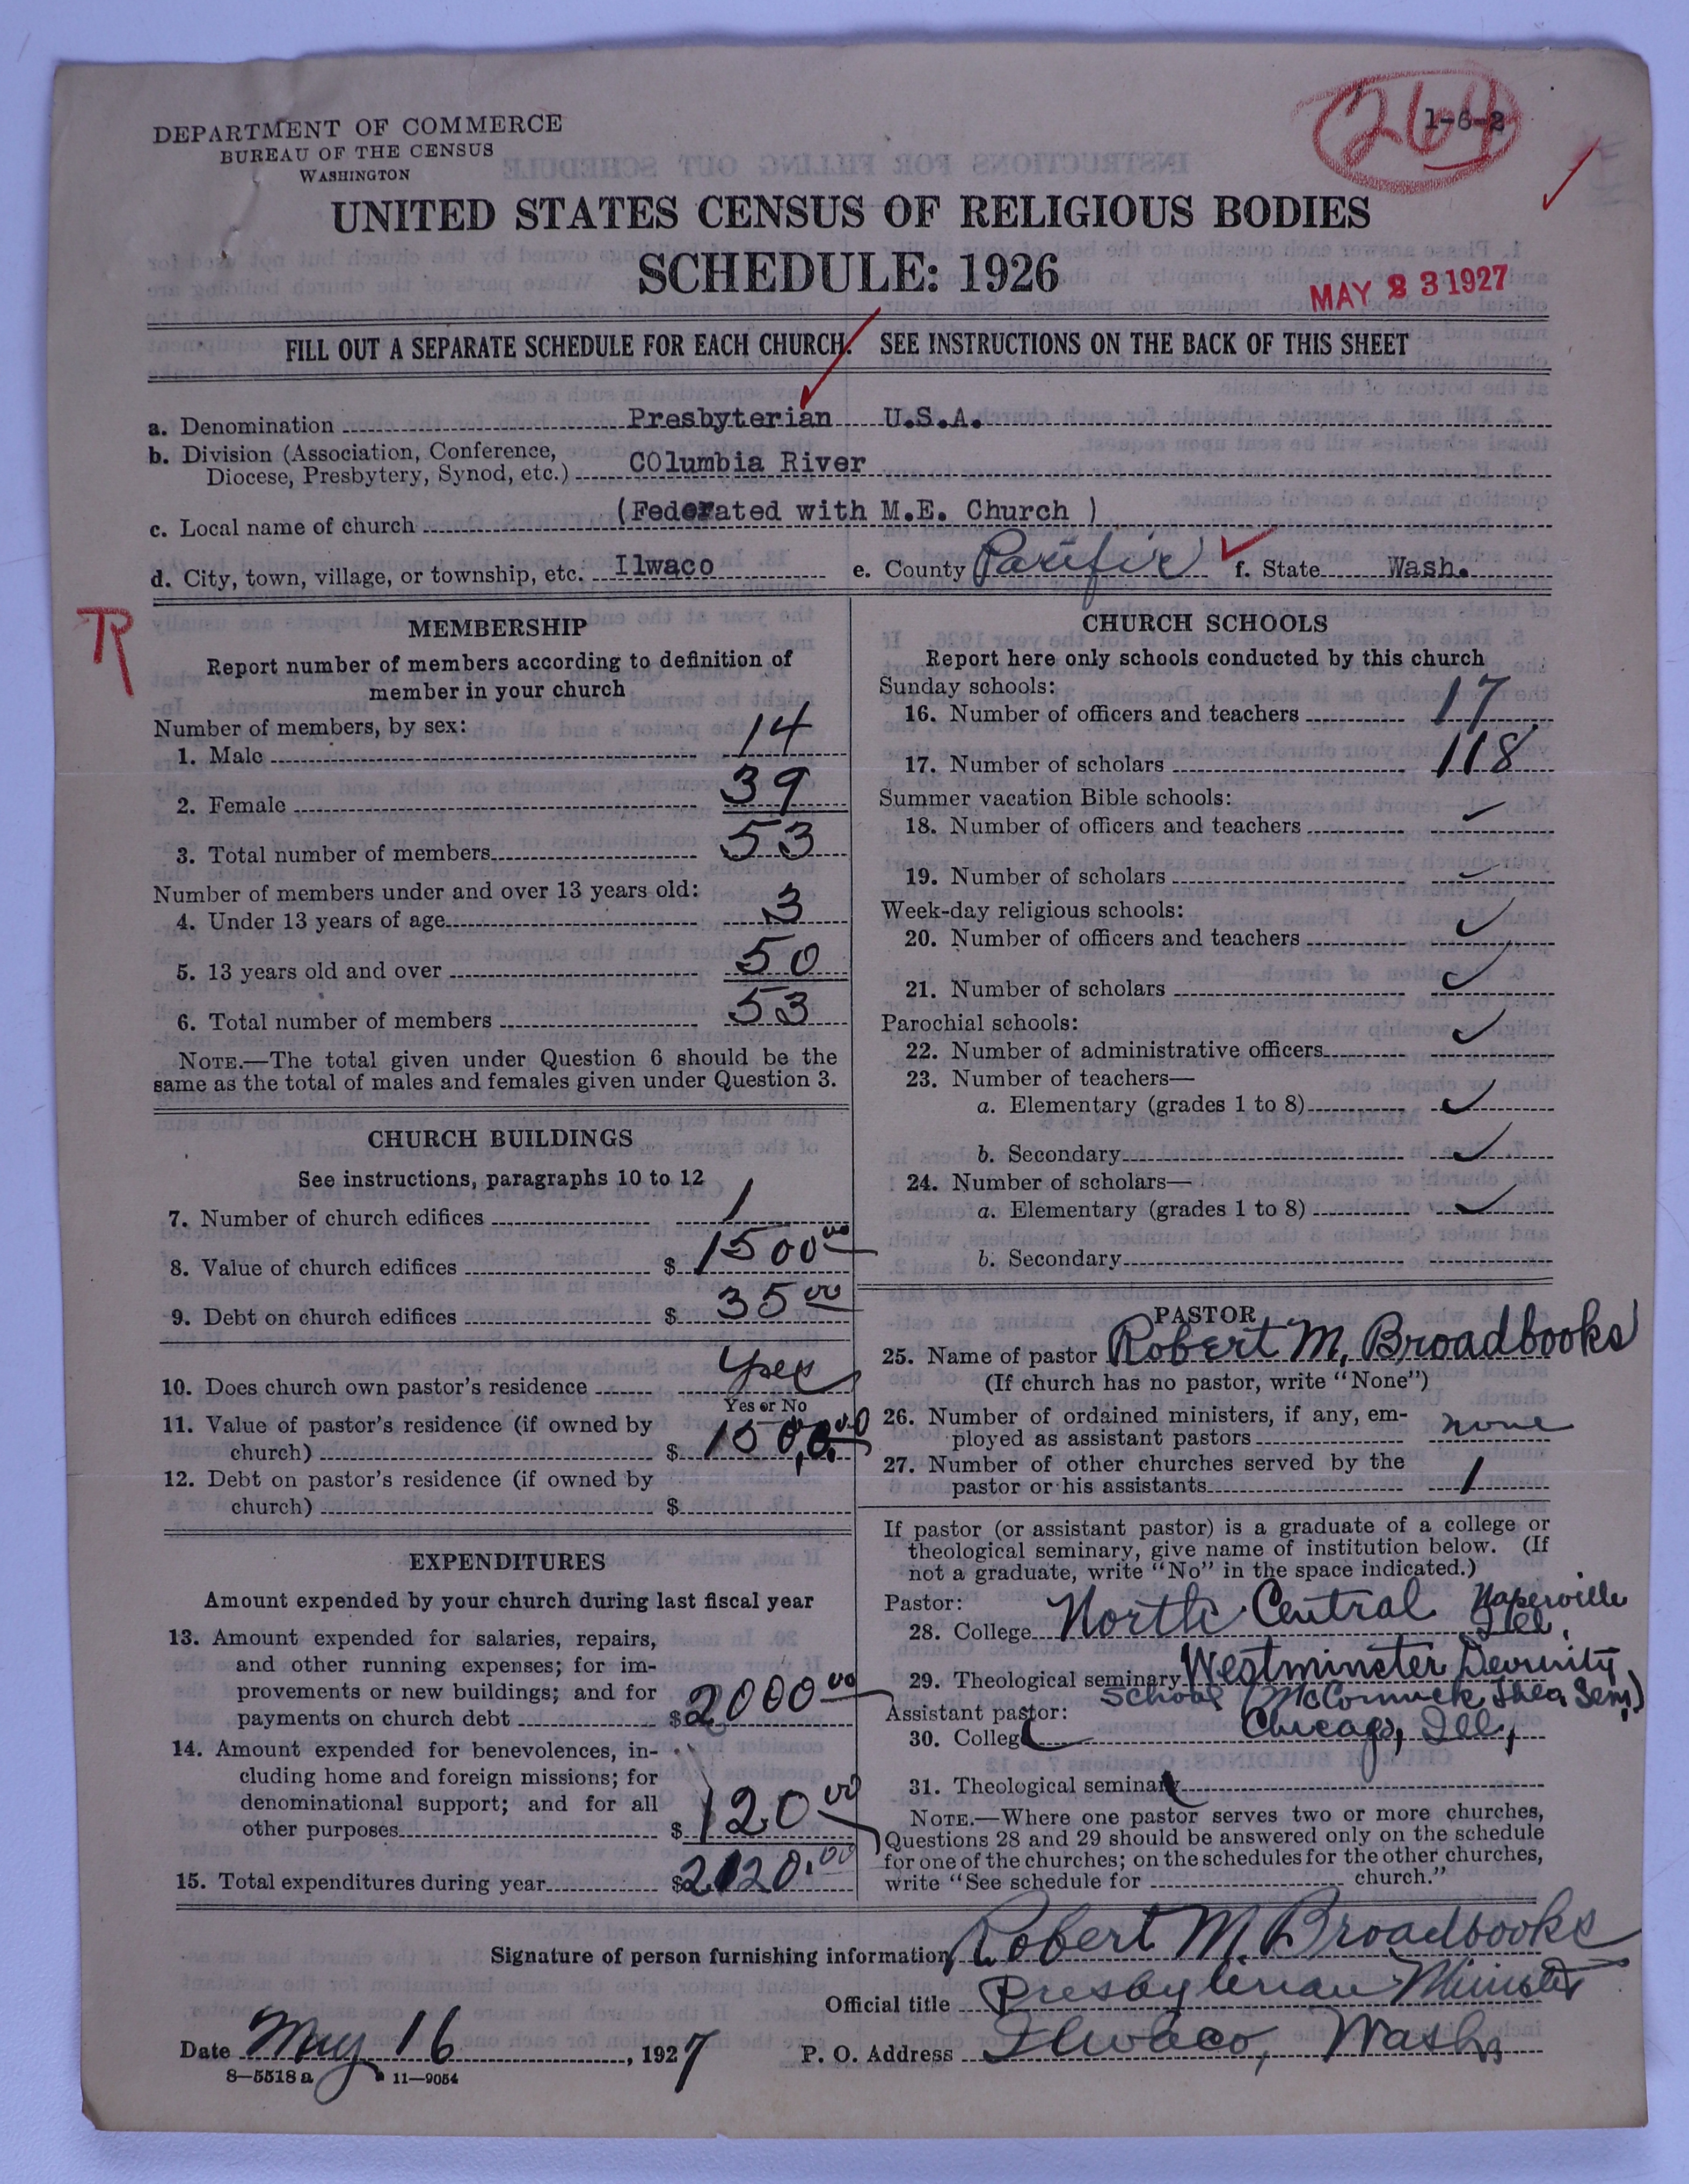 DEPARTMENT OF COMMERCE
BUREAU OF THE CENSUS
WASHINGTON
264
1-6-2
UNITED STATES CENSUS OF RELIGIOUS BODIES
SCHEDULE: 1926
MAY 23 1927
FILL OUT A SEPARATE SCHEDULE FOR EACH CHURCH. SEE INSTRUCTIONS ON THE BACK OF THIS SHEET
a. Denomination Presbyterian U.S.A.
b. Division (Association, Conference,
Diocese, Presbytery, Synod, etc.) COlumbia River
c. Local name of church (Federated with M.E. Church )
d. City, town, village, or township, etc. Ilwaco e. County Pacific f. State Wash.
MEMBERSHIP
Report number of members according to definition of
member in your church
Number of members, by sex:
1. Male 14
2. Female 39
3. Total number of members 53
Number of members under and over 13 years old:
4. Under 13 years of age 3
5. 13 years old and over 50
6. Total number of members 53
NOTE.—The total given under Question 6 should be the
same as the total of males and females given under Question 3.
CHURCH BUILDINGS
See instructions, paragraphs 10 to 12
7. Number of church edifices 1
8. Value of church edifices $ 1500 00
9. Debt on church edifices $ 35 00
10. Does church own pastor's residence yes
Yes or No
11. Value of pastor's residence (if owned by
church) $ 1500.00
12. Debt on pastor's residence (if owned by
church) $
EXPENDITURES
Amount expended by your church during last fiscal year
13. Amount expended for salaries, repairs,
and other running expenses; for im-
provements or new buildings; and for
payments on church debt $ 2000 00
14. Amount expended for benevolences, in-
cluding home and foreign missions; for
denominational support; and for all
other purposes $ 120 00
15. Total expenditures during year $ 2120.00
CHURCH SCHOOLS
Report here only schools conducted by this church
Sunday schools:
16. Number of officers and teachers 17
17. Number of scholars 118
Summer vacation Bible schools:
18. Number of officers and teachers
19. Number of scholars
Week-day religious schools:
20. Number of officers and teachers
21. Number of scholars
Parochial schools:
22. Number of administrative officers
23. Number of teachers—
a. Elementary (grades 1 to 8)
b. Secondary
24. Number of scholars—
a. Elementary (grades 1 to 8)
b. Secondary
PASTOR
25. Name of pastor Robert M. Broadbooks
(If church has no pastor, write "None")
26. Number of ordained ministers, if any, em-
ployed as assistant pastors none
27. Number of other churches served by the
pastor or his assistants 1
If pastor (or assistant pastor) is a graduate of a college or
theological seminary, give name of institution below. (If
not a graduate, write "No" in the space indicated.)
Pastor:
28. College North Central Naperville Ill.
29. Theological seminary Westminster Devinity
School (McCormick Theo Sem)
Assistant pastor:
Chicago, Ill,
30. College
31. Theological seminary
NOTE.—Where one pastor serves two or more churches,
Questions 28 and 29 should be answered only on the schedule
for one of the churches; on the schedules for the other churches,
write "See schedule for church."
Signature of person furnishing information Robert M. Broadbooks
Official title Presbyterian Minister
Date May 16, 1927 P. O. Address Ilwaco, Wash,
8—5518 a 11—9054